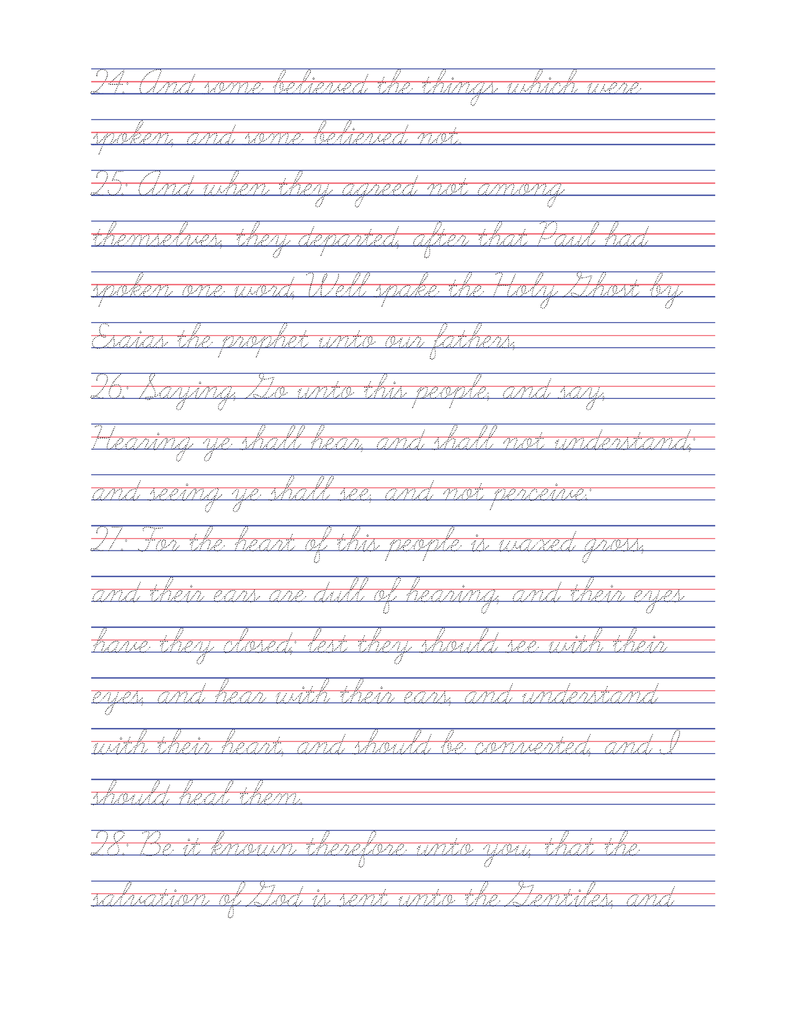 24: And some believed the things which were
spoken, and some believed not.
25: And when they agreed not among
themselves, they departed, after that Paul had
spoken one word, Well spake the Holy Ghost by
Esaias the prophet unto our fathers,
26: Saying, Go unto this people, and say,
Hearing ye shall hear, and shall not understand;
and seeing ye shall see, and not perceive:
27: For the heart of this people is waxed gross,
and their ears are dull of hearing, and their eyes
have they closed; lest they should see with their
eyes, and hear with their ears, and understand
with their heart, and should be converted, and I
should heal them.
28: Be it known therefore unto you, that the
salvation of God is sent unto the Gentiles, and